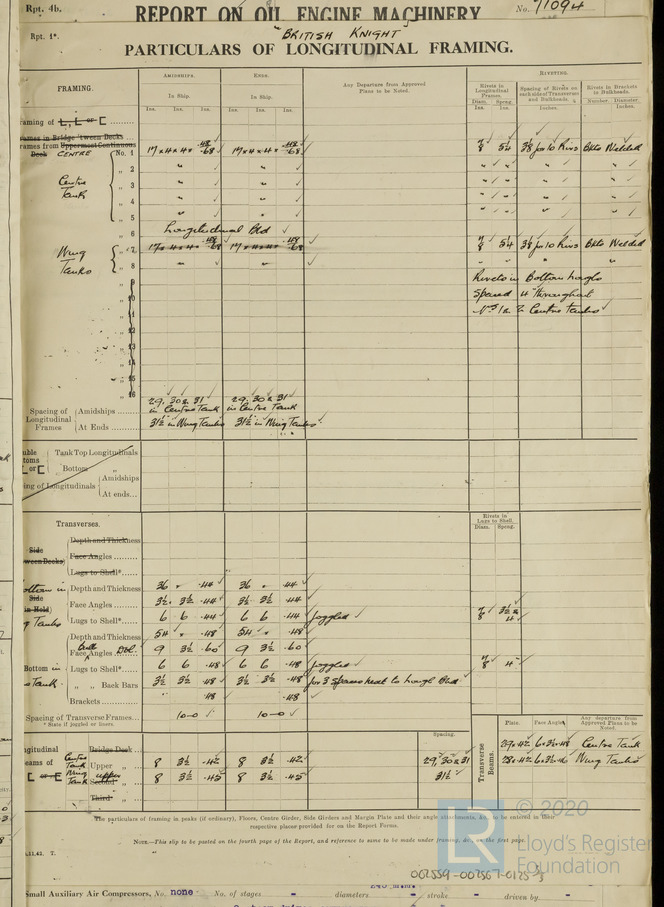 Rpt. 4b.
REPORT ON OIL ENGINE MACHINERY
No. 71094
Rpt. 1*.
"BRITISH KNIGHT
PARTICULARS OF LONGITUDINAL FRAMING.
FRAMING.
AMIDSHIPS.
ENDS.
Any Departure from Approved Plans to be Noted.
RIVETING.
In Ship.
In Ship.
Rivets in Longitudinal Frames.
Spacing of Rivets on each side of Transverses and Bulkheads.
Rivets in Brackets to Bulkheads.
Ins. Ins. Ins. Ins. Ins. Ins.
Diam. Ins. Spcng. Ins. Inches. Number. Diameter. Inches.
raming of L, L or [
rames in Bridge 'tween Decks
rames from Uppermost Continuous
Deck CENTRE No. 1 17 x 4 x 4 x .48 .68 17 x 4 x 4 x .48 .68 7/8 5 1/4 3 1/8 for 10 Rivs Bkts Welded
Centre Tank
„ 2 " " " " " "
„ 3 " " " " " "
„ 4 " " " " " "
„ 5 " " " " " "
„ 6 Longitudinal Bhd
Wing Tanks
„ 7 17 x 4 x 4 x .48 .68 17 x 4 x 4 x .48 .68 7/8 5 1/4 3 1/8 for 10 Rivs Bkts Welded
„ 8 " " " " " "
„ 9 Rivets in Bottom
„ 10 Spaced 4" throughout
„ 11 Centre Tanks
„ 12
„ 13
„ 14
„ 15
„ 16
Spacing of Longitudinal Frames
Amidships 29, 30 & 31 in Centre Tank 29, 30 & 31 in Centre Tank
At Ends 31 1/2 in Wing Tanks 31 1/2 in Wing Tanks
uble toms L or [
Tank Top Longitudinals
Bottom „
ng of Longitudinals
Amidships
At ends
Transverses.
Rivets in Lugs to Shell.
Diam. Spcng.
Side
ween Decks)
Depth and Thickness
Face Angles
Lugs to Shell*
ottom in
Side
in Hold)
g Tanks
Depth and Thickness 36 " .44 36 " .44
Face Angles 3 1/2 3 1/2 .44 3 1/2 3 1/2 .44
Lugs to Shell* 6 6 .44 6 6 .44 joggled 7/8 3 1/2 & 4
Depth and Thickness 54 " .48 54 " .48
Face Bulb Angles 9 3 1/2 .60 9 3 1/2 .60
Bottom in
Tank
Lugs to Shell* 6 6 .48 6 6 .48 joggled 7/8 4
„ „ Back Bars 3 1/2 3 1/2 .48 3 1/2 3 1/2 .48 for 3 spaces next to Longl Bhd
Brackets .48 .48
Spacing of Transverse Frames 10-0 10-0
* State if joggled or liners.
Transverse Beams.
Plate. Face Angles. Any departure from Approved Plans to be Noted.
Centre Tank
Wing Tanks
ngitudinal
eams of
[ or [
Bridge Deck
Spacing.
Centre Tank Upper „ 8 3 1/2 .42 8 3 1/2 .42 29, 30 & 31
Wing Tank upper Second „ 8 3 1/2 .45 8 3 1/2 .45 31 1/2
Third „
The particulars of framing in peaks (if ordinary), Floors, Centre Girder, Side Girders and Margin Plate and their angle attachments, &c., to be entered in their
respective places provided for on the Report Forms.
NOTE.—This slip to be posted on the fourth page of the Report, and reference to same to be made under framing, &c., on the first page.
.11,42. T.
LR © 2020
Lloyd's Register
Foundation
Small Auxiliary Air Compressors, No. none No. of stages - diameters - stroke - driven by -